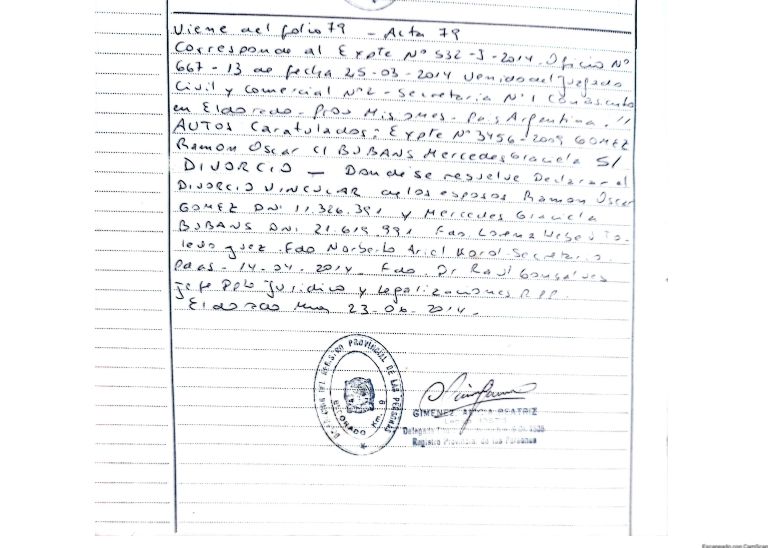 Viene del folio 79 - Acta 79
Corresponde al Expte Nº 532-J-2014. Oficio Nº
667-13 de fecha 25-03-2014 venido del Juzgado
Civil y Comercial Nº2 - Secretaria Nº1 con asiento
en Eldorado. Prov Misiones. Pais Argentina. //
AUTOS Caratulados: Expte Nº 3456-2009 GOMEZ
Ramon Oscar C/ BUBANS Mercedes Graciela S/
DIVORCIO - Donde se resuelve Declarar el
DIVORCIO VINCULAR de los esposos Ramon Oscar
GOMEZ DNI 11.326.391 y Mercedes Graciela
BUBANS DNI 21.619.991 Fdo Lorena
Juez. Fdo Norberto Ariel Korol. Secretario.
Pdas - 14-04-2014. Fdo. Dr Raúl Gonsalves
Jefe Dpto Juridico y Legalizaciones RPP.
Eldorado Mnes 23-06-2014.
DIRECCION DEL REGISTRO PROVINCIAL DE LAS PERSONAS
ELDORADO Km. 9
GIMENEZ BEATRIZ
Registro Provincial de las Personas
Escaneado con CamScanner